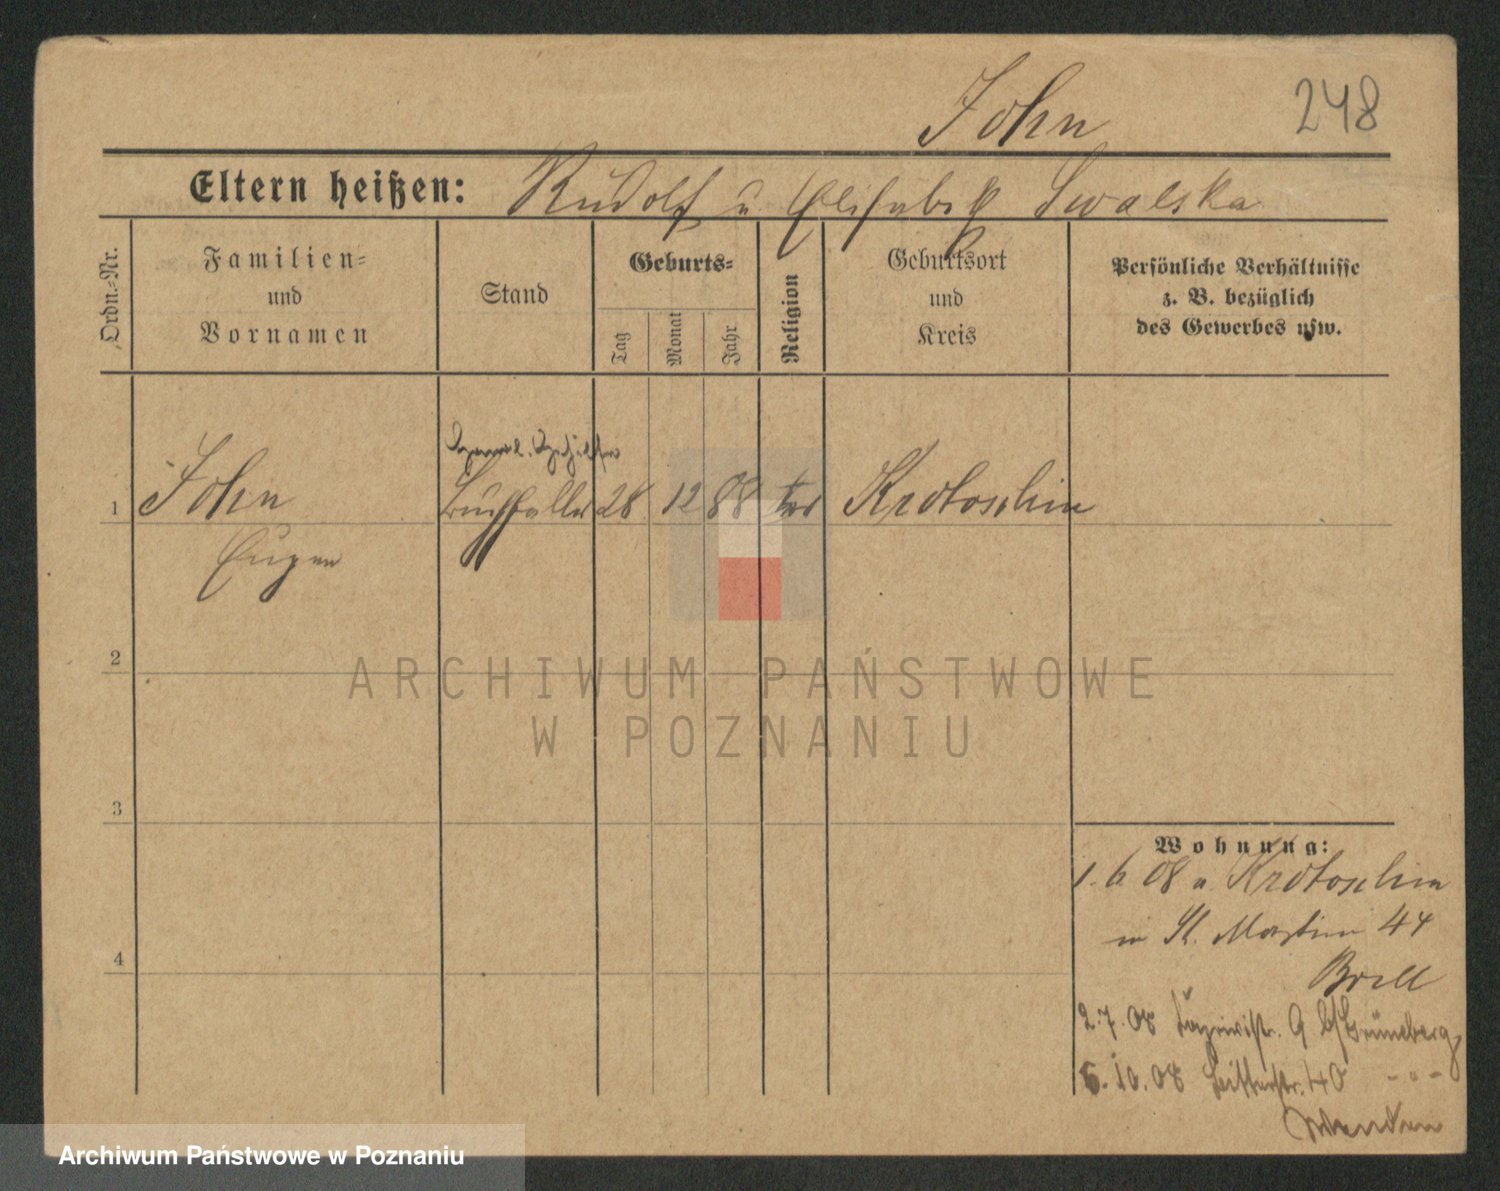 John
248
Eltern heißen: Rudolf u Elisabeth Swalska
Ordn.=Nr.
Familien=
und
Vornamen
Stand
Geburts=
Tag
Monat
Jahr
Religion
Geburtsort
und
Kreis
Persönliche Verhältnisse
z. B. bezüglich
des Gewerbes usw.
1 John Buchhalter 28 12 88 Krotoschin
Eugen
2
3
4
Wohnung:
1. 6 08 v. Krotoschin
in St. Martin 44
Brill
2.7.08 9 b/Grüneberg
5.10.08 40 - " -
ARCHIWUM PAŃSTWOWE
W POZNANIU
Archiwum Państwowe w Poznaniu